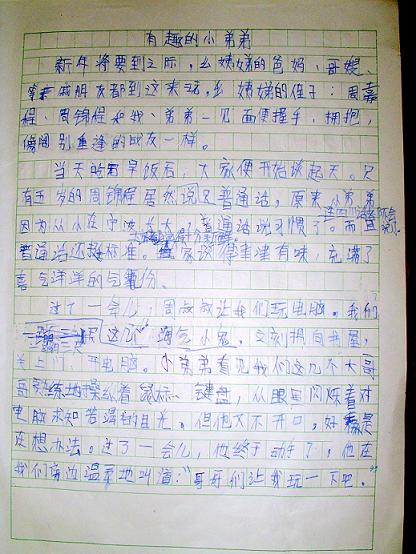 有趣的小弟弟
新年将要到之际，幺姨娣的爸妈、哥嫂、
戚朋友都到这来玩。幺姨娣的侄子：周嘉
程、周锦程和我、弟弟一见面便握手，拥抱，
像阔别重逢的战友一样。
当天的早饭后，大家便开始谈起天。只
有五岁的周锦程居然说只普通话，原来小弟弟
因为从小在宁波长大，普通话说习惯了。而且
普通话还挺标准。家谈得津津有味，充满了
喜气洋洋的气氛。
过了一会儿，周叔叔让我们玩电脑。我们
这几 淘气小鬼，立刻拥向书屋，
关上门，开电脑。小弟弟看见我们这几个大哥
哥熟练地操纵着鼠标、键盘，从眼里闪烁着对
电脑求知若渴的目光。但他又不开口，好像是
在想办法。过了一会儿，他终于动手了，他在
我们旁边温柔地叫道：“哥哥们让我玩一下吧。”